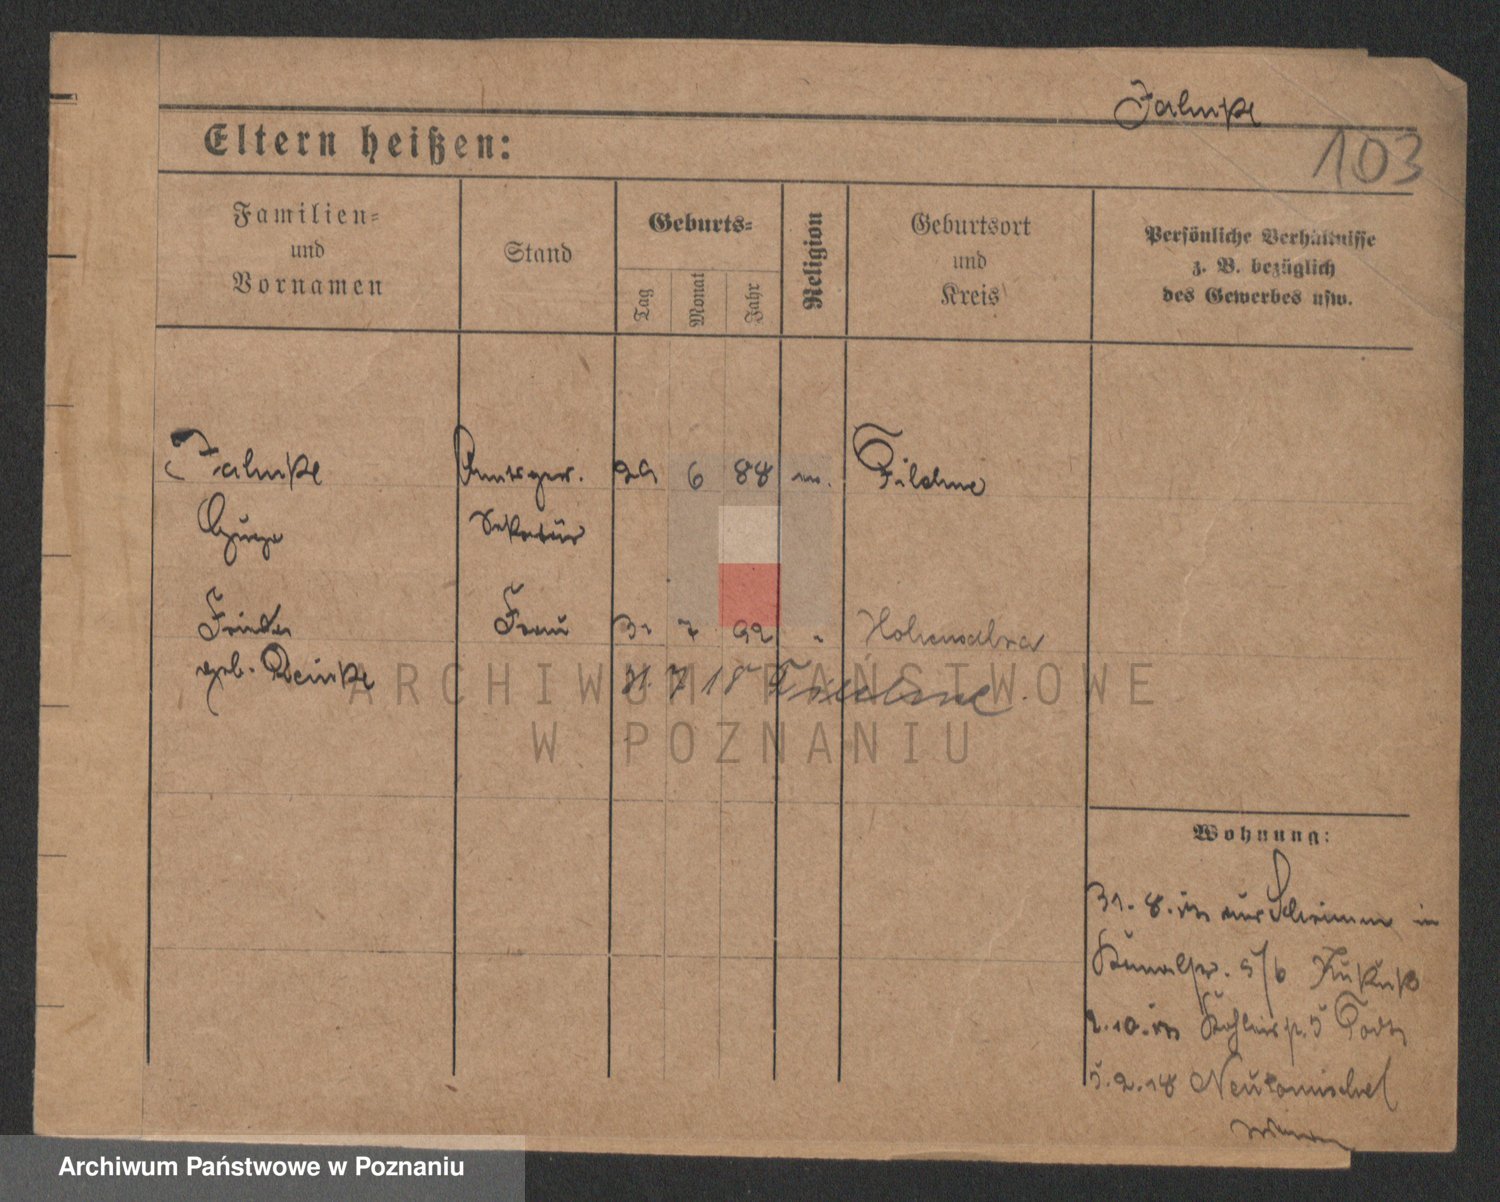 Jahnke
103
Eltern heißen:
Familien=
und
Vornamen
Stand
Geburts=
Tag
Monat
Jahr
Religion
Geburtsort
und
Kreis
Persönliche Verhältnisse
z. B. bezüglich
des Gewerbes usw.
Jahnke
Amtsger. 29 6 88 Filehne
Sekretär
Frieda Frau 7 92 Hohensalza
geb. Reinke 31. 7 18
ARCHIWUM PAŃSTWOWE
W POZNANIU
Wohnung:
31. 8. aus Schrimm in
Kanalstr. 5/6
2. 10. 5
5. 2. 18 Neutomischel
Archiwum Państwowe w Poznaniu